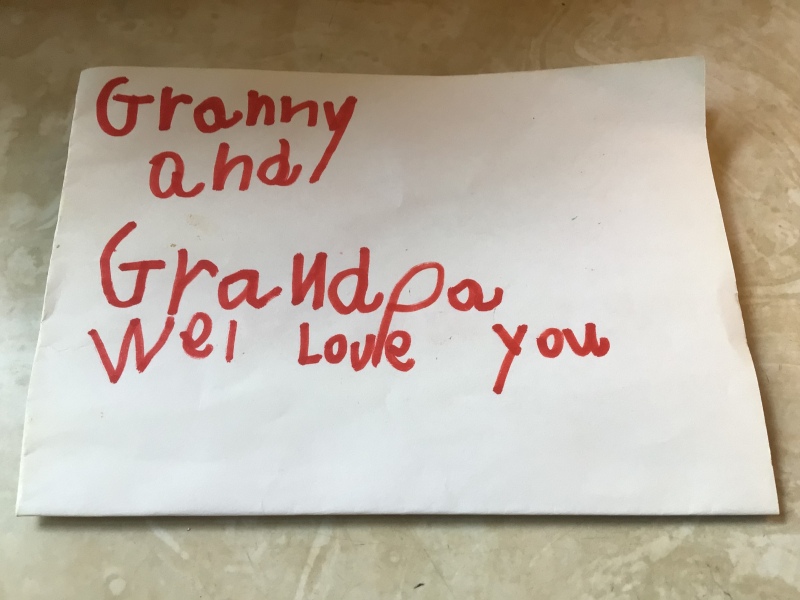 Granny
and
Grandpa
Wel Love you